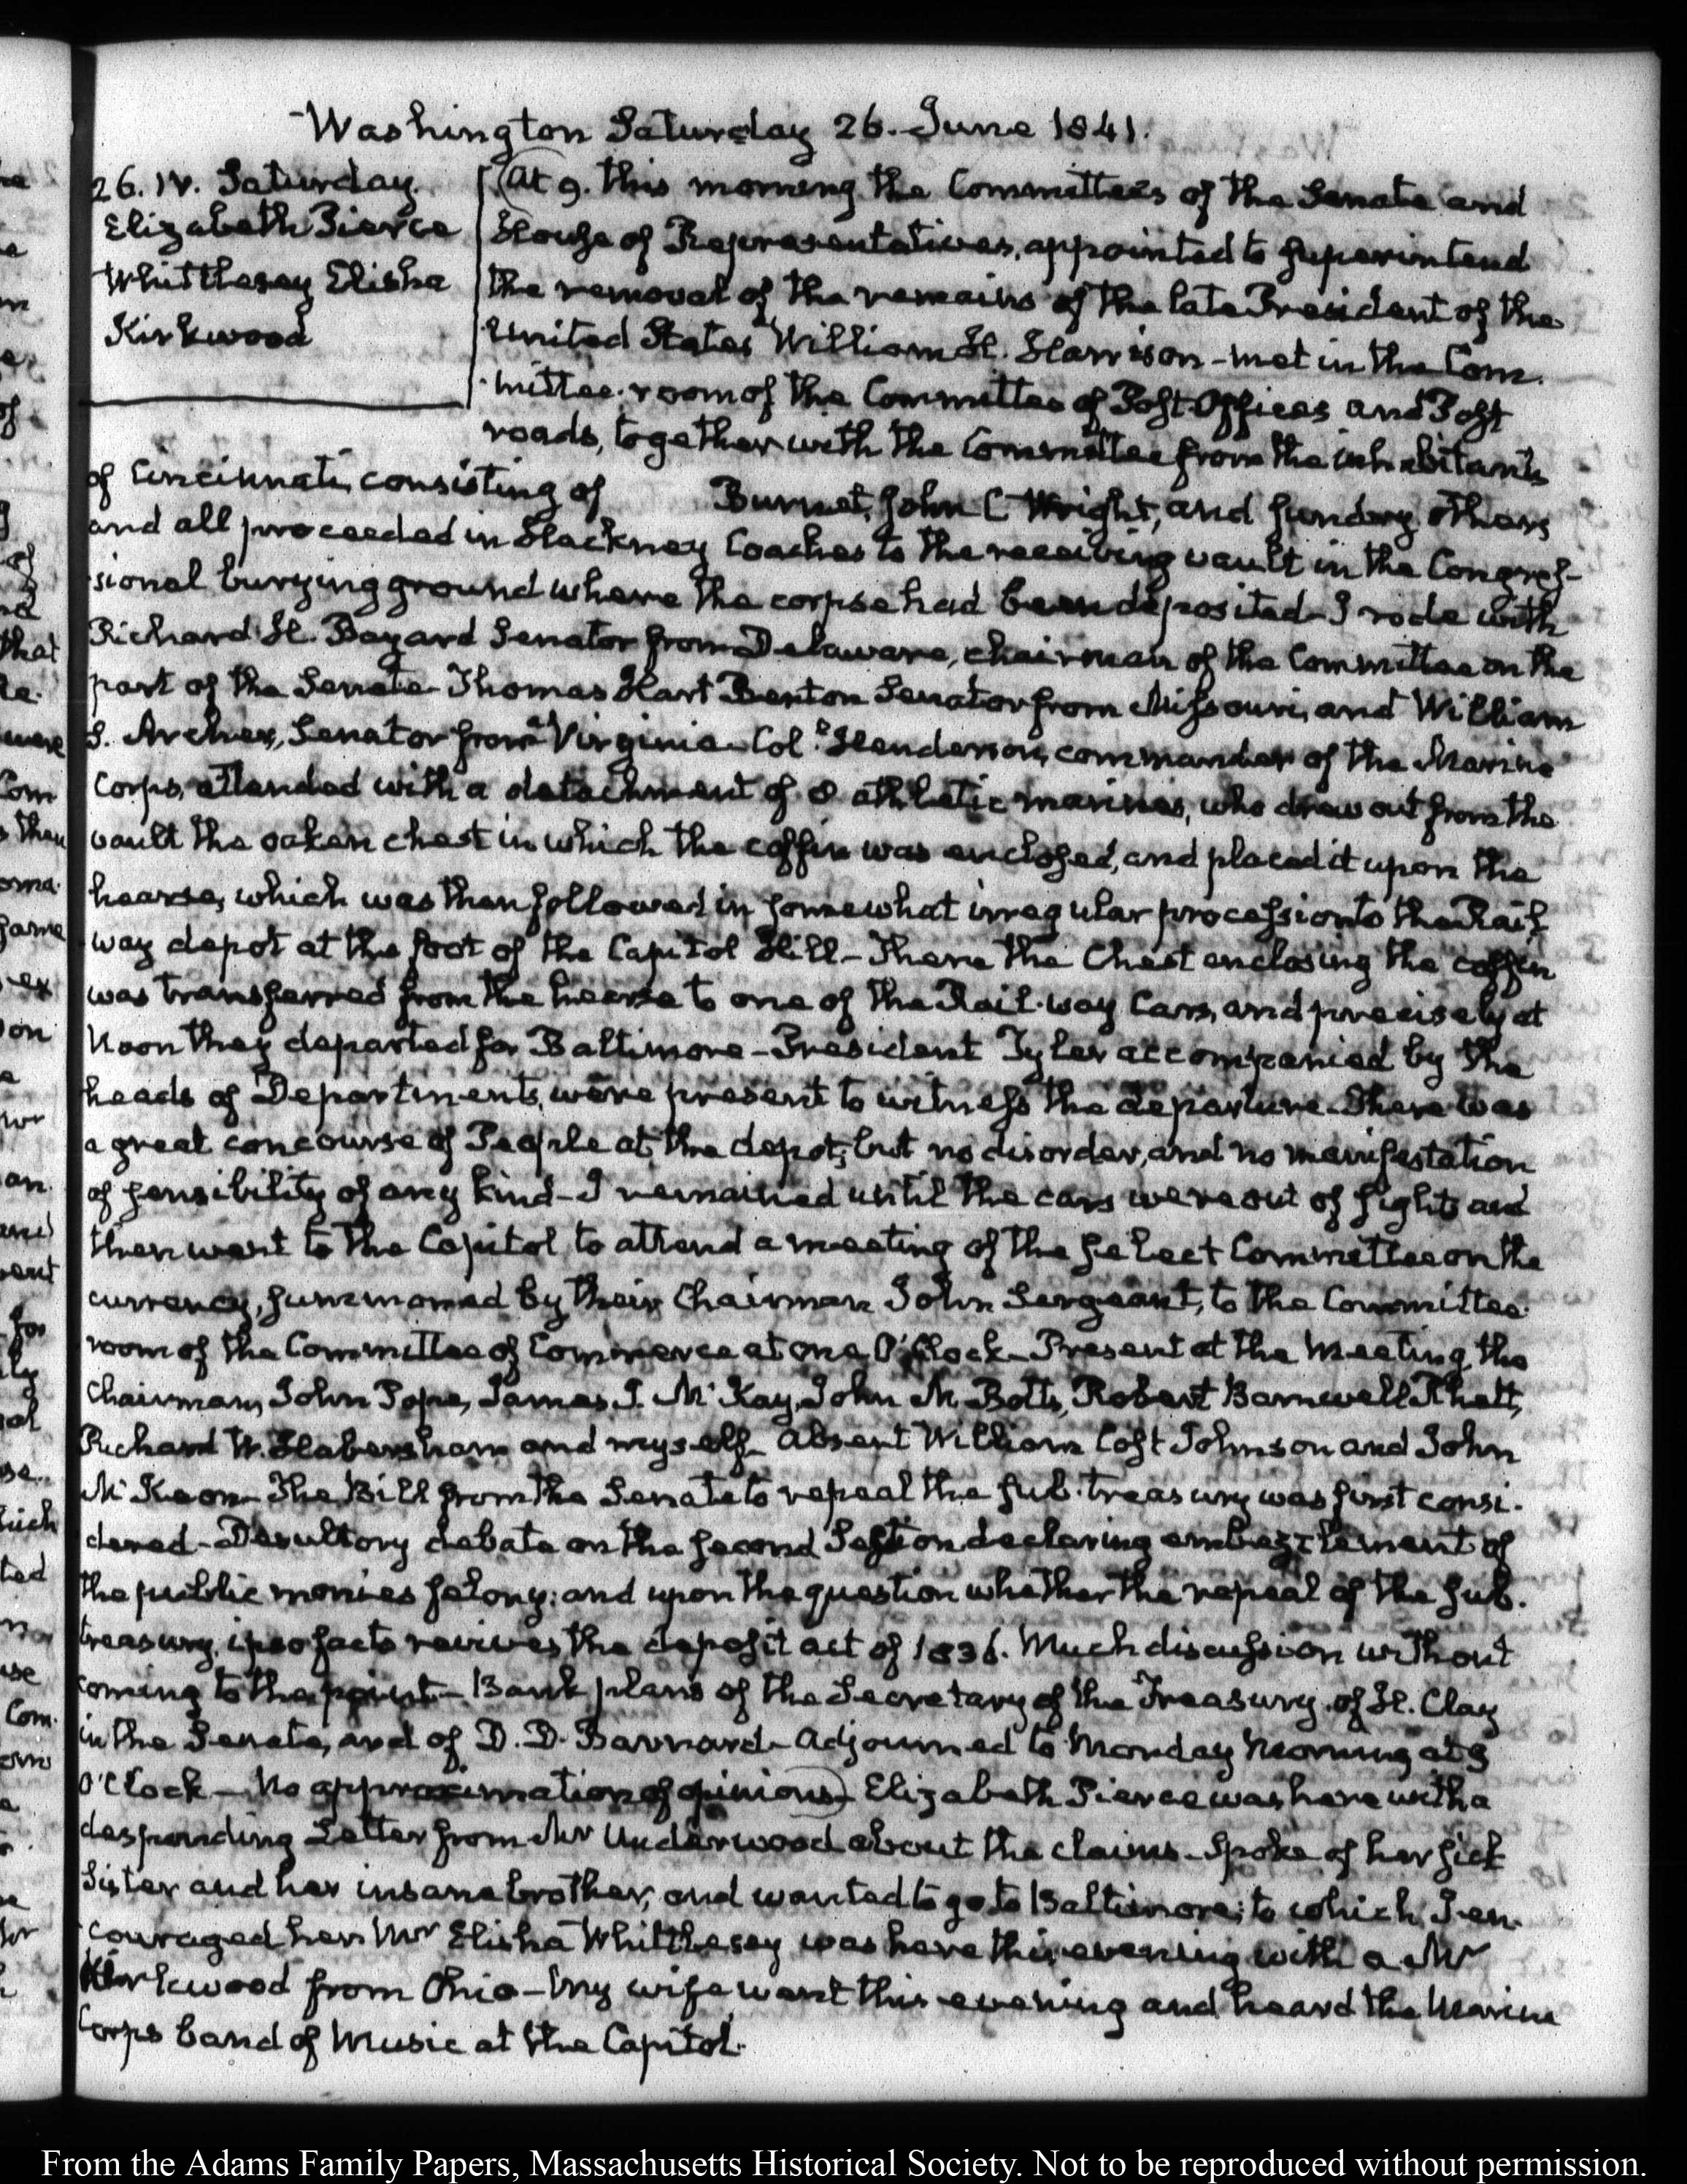 Washington Saturday 26. June 1841.
26. IV. Saturday.
Elizabeth Pierce
Whittlesey Elisha
Kirkwood
At 9. this morning the Committees of the Senate and
House of Representatives, appointed to superintend
the removal of the remains of the late President of the
United States William H. Harrison - met in the Com-
mittee-room of the Committee of Post-Offices and Post
roads, together with the Committee from the inhabitants
of Cincinnati, consisting of Burnet, John C Wright, and sundry others
and all proceeded in Hackney Coaches to the receiving vault in the Congres-
sional burying ground where the corpse had been deposited - I rode with
Richard H. Bayard Senator from Delaware, chairman of the Committee on the
part of the Senate - Thomas Hart Benton Senator from Missouri, and William
S. Archer, Senator from Virginia - Col. Henderson, commander of the Marine
Corps, attended with a detachment of 8 athletic marines, who drew out from the
vault the oaken chest in which the coffin was enclosed, and placed it upon the
hearse, which was then followed in somewhat irregular procession to the Rail
way depot at the foot of the Capitol Hill - There the Chest enclosing the coffin
was transferred from the hearse to one of the Rail-way Cars, and precisely at
Noon they departed for Baltimore - President Tyler accompanied by the
heads of Departments, were present to witness the departure - There was
a great concourse of People at the depot; but no disorder, and no manifestation
of sensibility of any kind - I remained until the cars were out of sight and
then went to the Capitol to attend a meeting of the select Committee on the
currency, summoned by their Chairman John Sergeant, to the Committee-
room of the Committee of Commerce at one O'Clock - Present at the Meeting, the
Chairman, John Pope, James I. McKay, John M. Botts, Robert Barnwell Rhett,
Richard W. Habersham and myself - Absent William Cost Johnson and John
McKeon - The Bill from the Senate to repeal the sub-treasury was first consi-
dered - Desultory debate on the second Section declaring embezzlement of
the public monies felony: and upon the question whether the repeal of the sub-
treasury, ipso facto revives the deposit act of 1836. Much discussion without
coming to the point - Bank plans of the Secretary of the Treasury. of H. Clay
in the Senate, and of D. D. Barnard - Adjourned to Monday Morning at 9
O'Clock - No approximation of opinions - Elizabeth Pierce was here with a
desponding Letter from Mr Underwood about the claims - Spoke of her sick
Sister and her insane brother, and wanted to go to Baltimore; to which I en-
couraged her. Mr Elisha Whittlesey was here this evening with a Mr
Kirkwood from Ohio - My wife went this evening and heard the Marine
Corps band of Music at the Capitol.
From the Adams Family Papers, Massachusetts Historical Society. Not to be reproduced without permission.